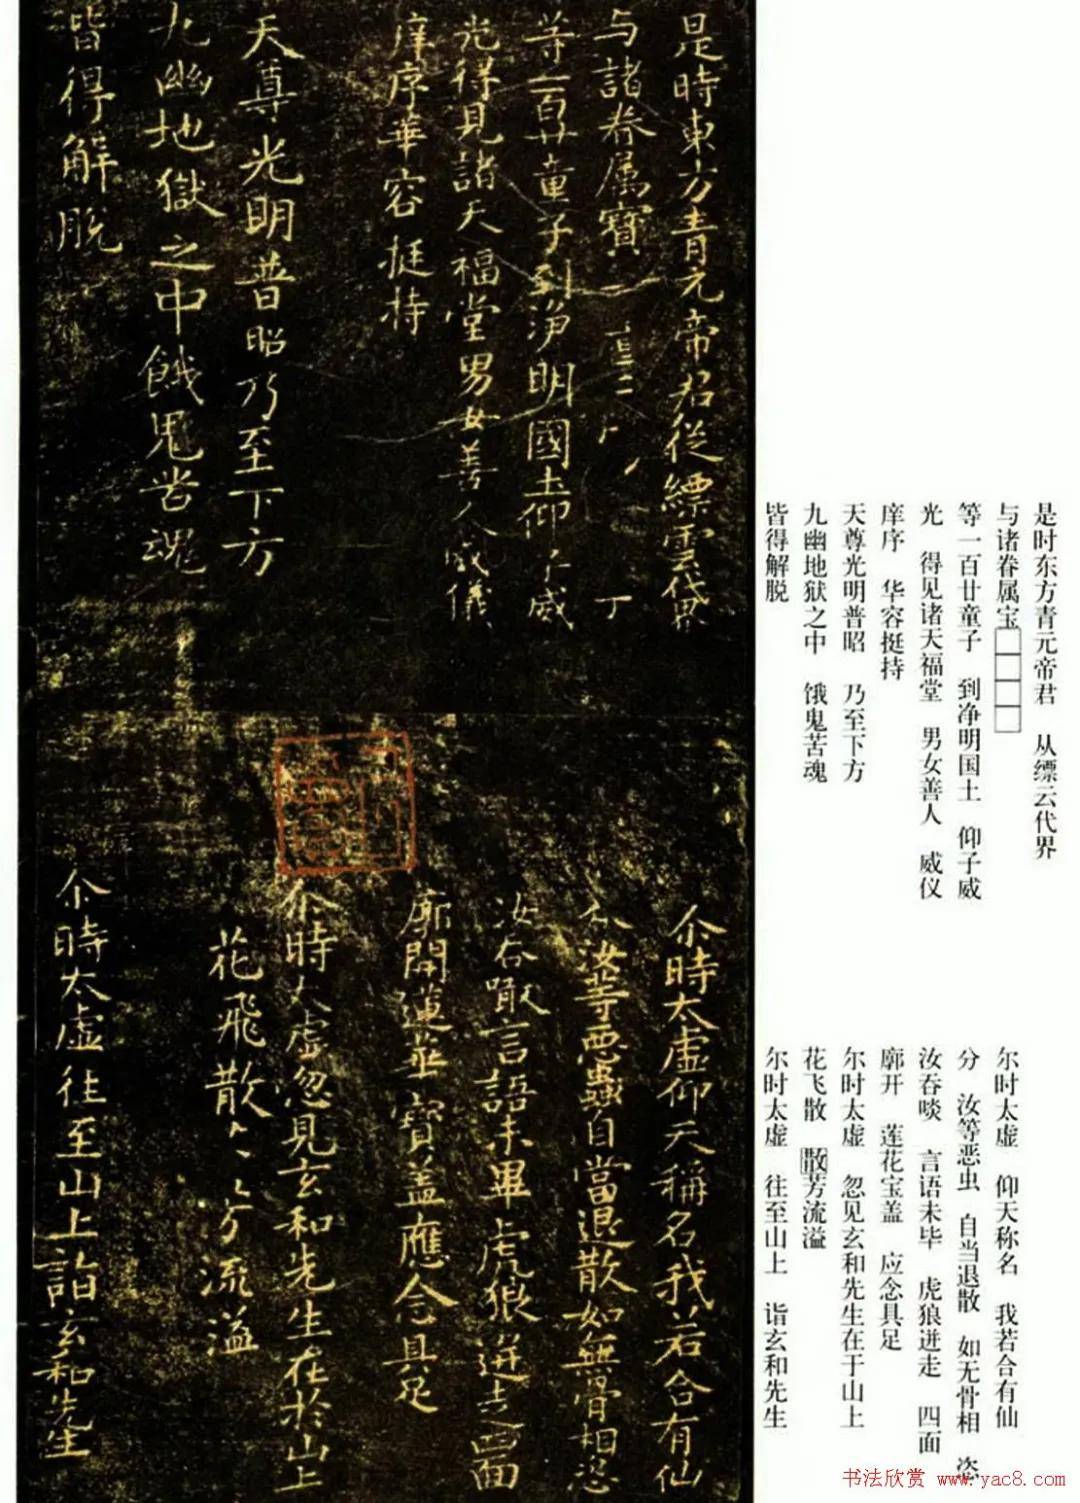 是時東方青元帝君從縹雲代界
与諸眷属寶
等一百廿童子到淨明國土仰子威
光得見諸天福堂男女善人威儀
庠序華容挺持
天尊光明普昭乃至下方
九幽地獄之中餓鬼苦魂
皆得解脱
尒時太虛仰天稱名我若合有仙
分汝等惡蟲自當退散如無骨相恣
汝吞噉言語未畢虎狼迸走四面
廓開蓮華寶盖應念具足
尒時太虛忽見玄和先生在於山上
花飛散散芳流溢
尒時太虛往至山上詣玄和先生
是时东方青元帝君 从缥云代界
与诸眷属宝□□□□
等一百廿童子 到净明国土 仰子威
光 得见诸天福堂 男女善人 威仪
庠序 华容挺持
天尊光明普昭 乃至下方
九幽地狱之中 饿鬼苦魂
皆得解脱
尔时太虚 仰天称名 我若合有仙
分 汝等恶虫 自当退散 如无骨相 恣
汝吞啖 言语未毕 虎狼迸走 四面
廓开 莲花宝盖 应念具足
尔时太虚 忽见玄和先生在于山上
花飞散 散芳流溢
尔时太虚 往至山上 诣玄和先生
书法欣赏 www.yac8.com